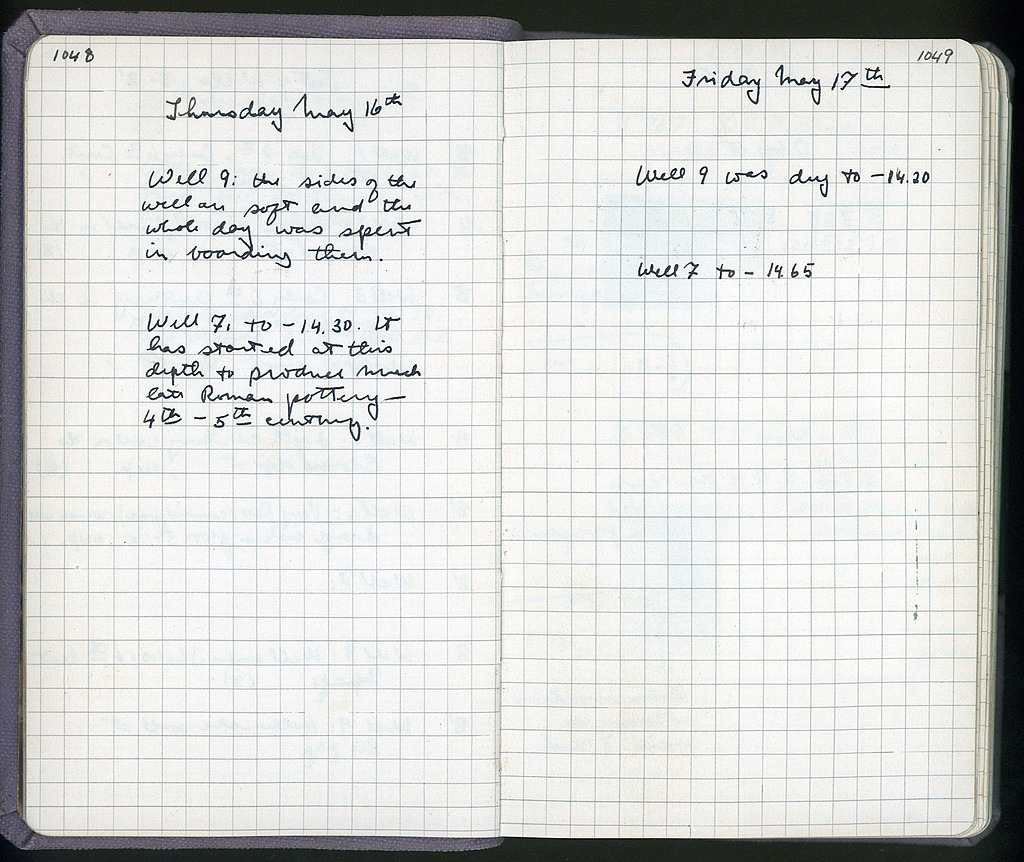 1048
Thursday May 16th
Well 9: the sides of the
well are soft and the
whole day was spent
in boarding them.
Well 7, to -14.30. It
has started at this
depth to produce much
late Roman pottery -
4th - 5th century.
1049
Friday May 17th
Well 9 was dug to -14.20
Well 7 to - 14.65